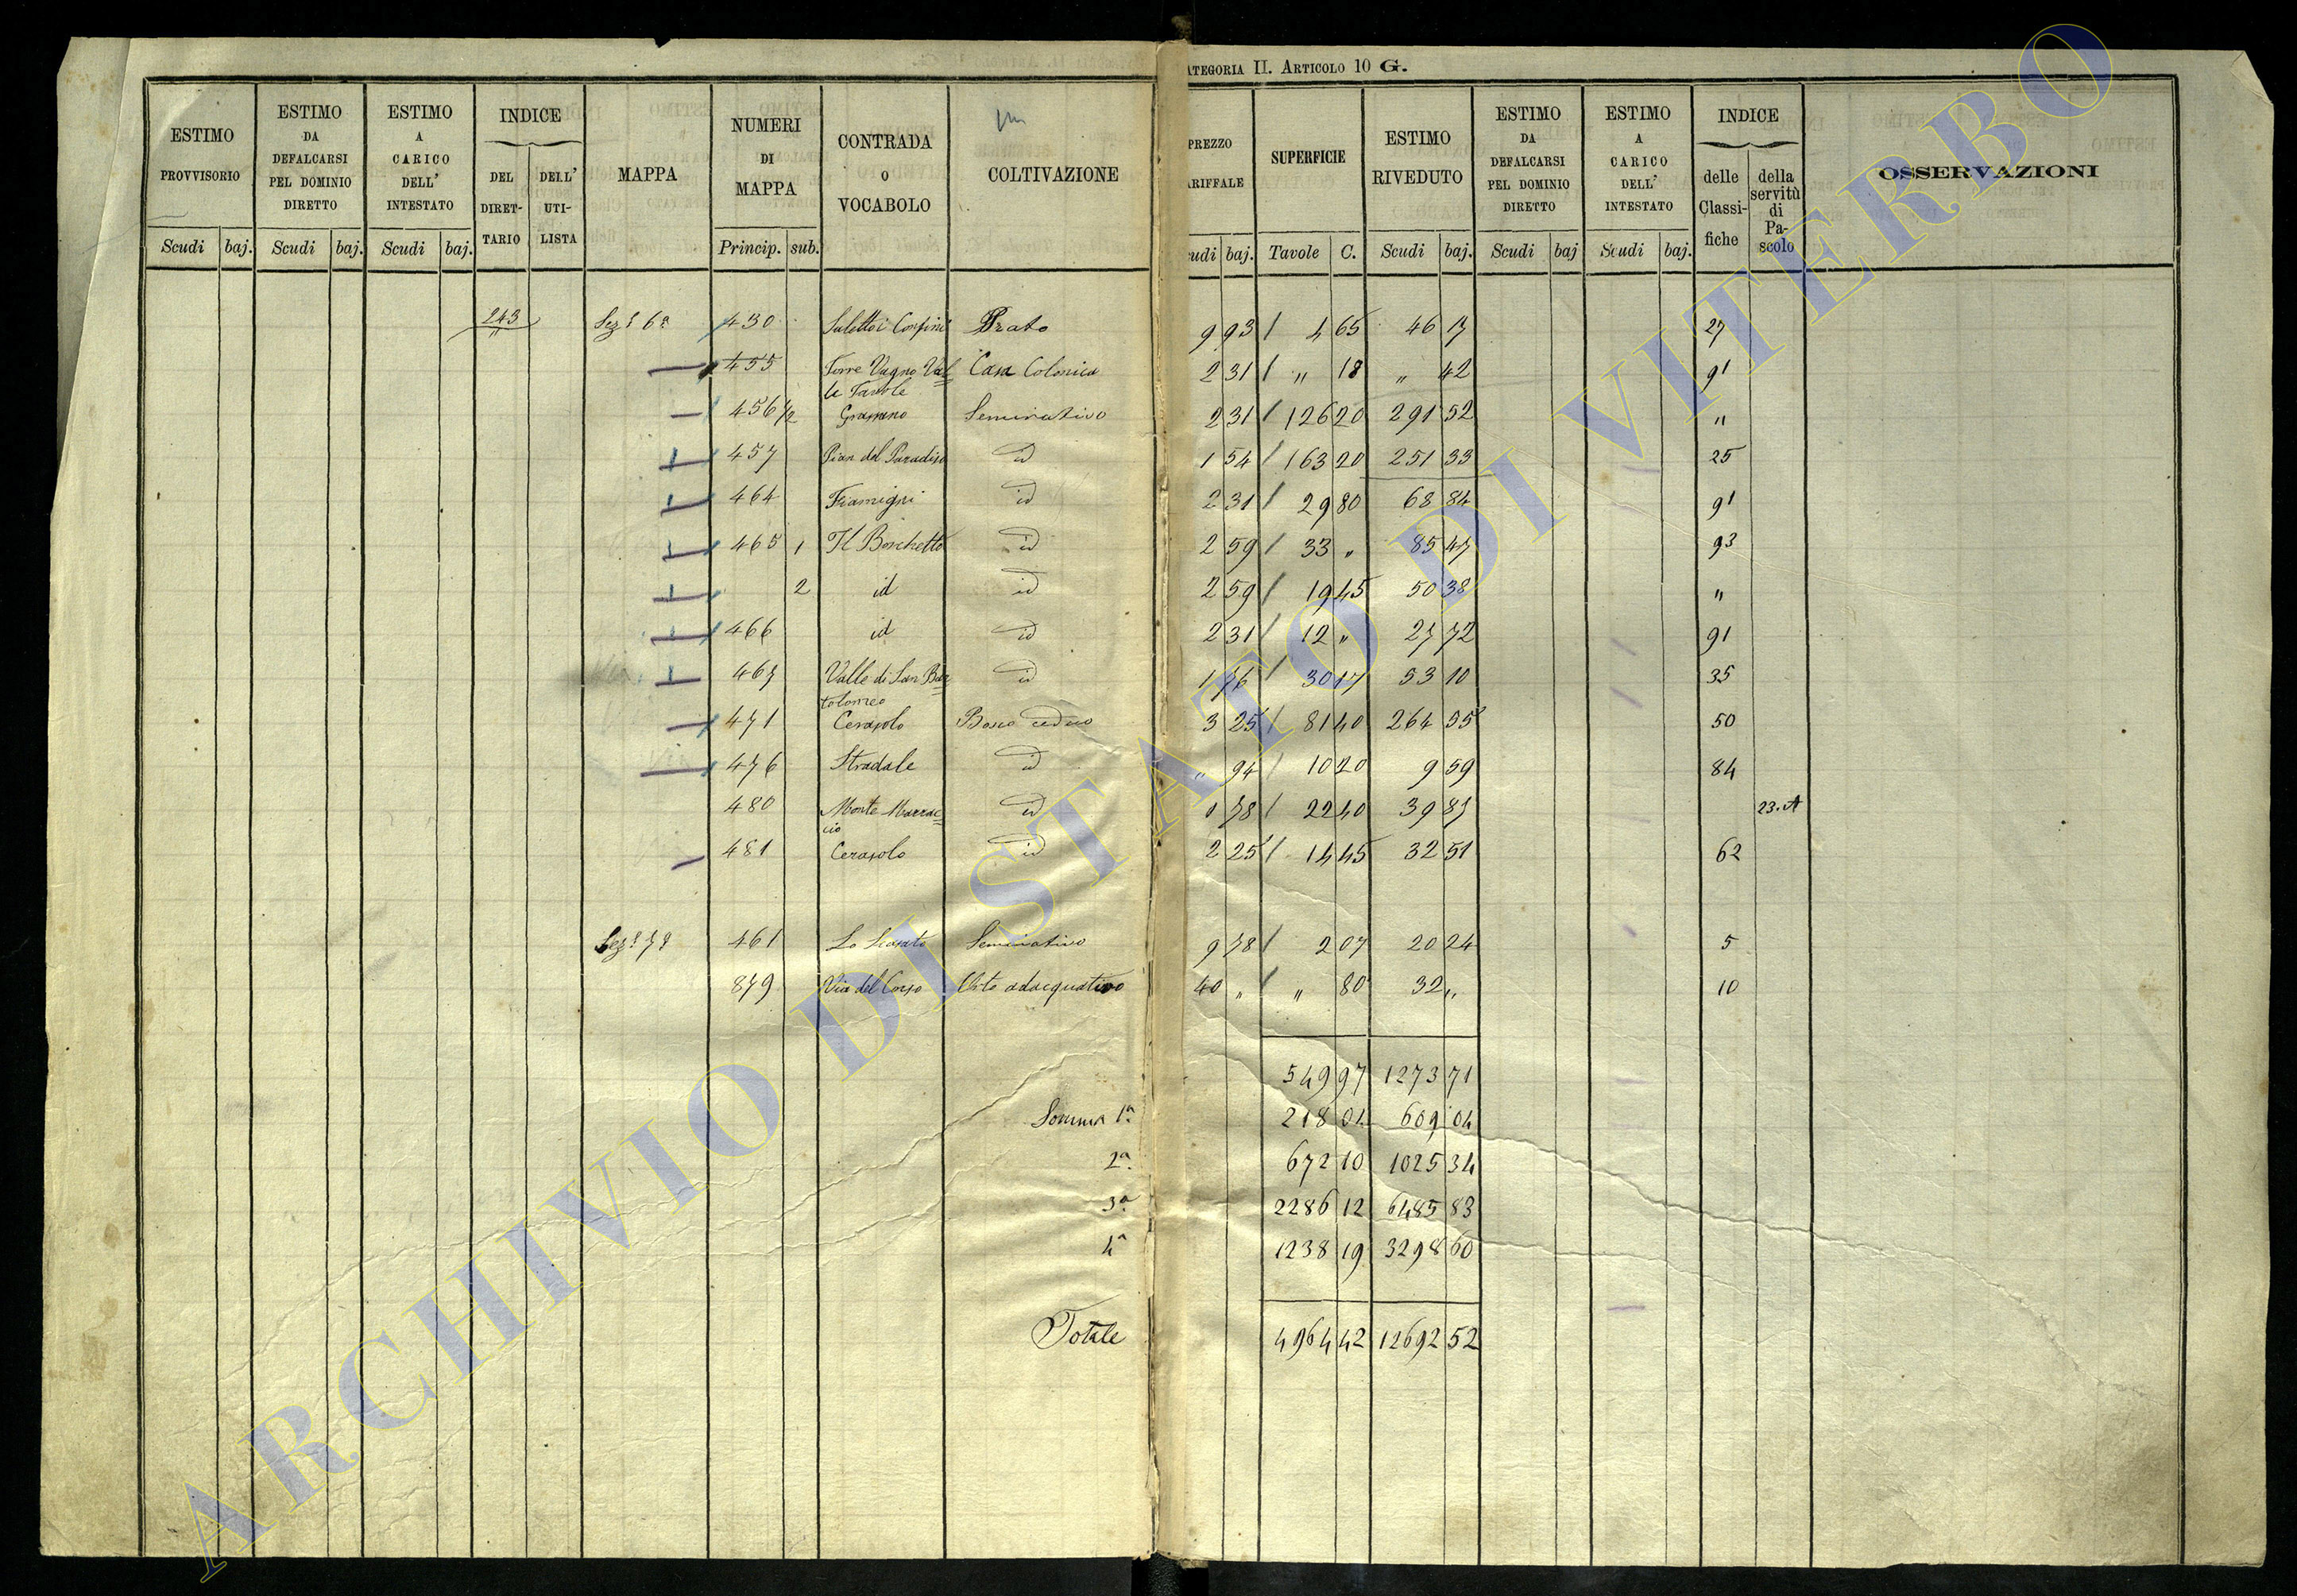 CATEGORIA II. ARTICOLO 10 G.
ESTIMO PROVVISORIO Scudi baj.
ESTIMO DA DEFALCARSI PEL DOMINIO DIRETTO Scudi baj.
ESTIMO A CARICO DELL' INTESTATO Scudi baj.
INDICE DEL DIRETTARIO DELL' UTILISTA
MAPPA
NUMERI DI MAPPA Princip. sub.
CONTRADA O VOCABOLO
COLTIVAZIONE
PREZZO TARIFFALE Scudi baj.
SUPERFICIE Tavole C.
ESTIMO RIVEDUTO Scudi baj.
ESTIMO DA DEFALCARSI PEL DOMINIO DIRETTO Scudi baj
ESTIMO A CARICO DELL' INTESTATO Scudi baj.
INDICE delle Classifiche della servitù di Pascolo
OSSERVAZIONI
243 Sez.e 6a 430 Confini Prato 9 93 4 65 46 17 27
455 Torre Vagno Valle Tavole Casa Colonica 2 31 " 18 " 42 91
456 1/2 Seminativo 2 31 126 20 291 52 "
457 Pian del Paradiso id 1 54 163 20 251 33 25
464 Fiamigni id 2 31 29 80 68 84 91
465 1 Il Boschetto id 2 59 33 " 85 47 93
2 id id 2 59 19 45 50 38 "
466 id id 2 31 12 " 27 72 91
467 Valle di San Bartolomeo id 1 76 30 17 53 10 35
471 Cerasolo Bosco ceduo 3 25 81 40 264 55 50
476 Stradale id " 94 10 20 9 59 84
480 Monte Marraccio id 1 78 22 40 39 87 23.A
481 Cerasolo id 2 25 14 45 32 51 62
Sez.e 7a 461 Lo Scasato Seminativo 9 78 2 07 20 24 5
879 Via del Corso Orto adacquativo 40 " " 80 32 " 10
549 97 1273 71
Somma 1a 218 04 609 04
2a 672 10 1025 34
3a 2286 12 6485 83
4a 1238 19 3298 60
Totale 4964 42 12692 52
ARCHIVIO DI STATO DI VITERBO